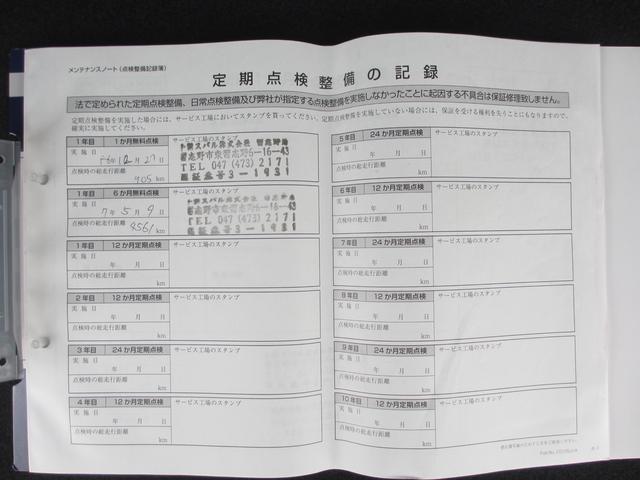 メンテナンスノート（点検整備記録簿）
定期点検整備の記録
法で定められた定期点検整備、日常点検整備及び弊社が指定する点検整備を実施しなかったことに起因する不具合は保証修理致しません。
定期点検整備を実施した場合には、サービス工場においてスタンプを貰ってください。定期点検整備を実施していない場合には、保証を受ける権利を失うこともなりますので、
確実に実施してください。
1年目 1か月無料点検 サービス工場のスタンプ
実施日
12月27日
点検時の総走行距離
905 km
スバル株式会社
習志野市東習志野6-16-43
TEL 047 (473) 2171
認証番号3-1931
1年目 6か月無料点検 サービス工場のスタンプ
実施日
7年5月9日
点検時の総走行距離
4561 km
スバル株式会社
習志野市東習志野6-16-43
TEL 047 (473) 2171
認証番号3-1931
1年目 12か月定期点検 サービス工場のスタンプ
実施日
年 月 日
点検時の総走行距離
km
2年目 12か月定期点検 サービス工場のスタンプ
実施日
年 月 日
点検時の総走行距離
km
3年目 24か月定期点検 サービス工場のスタンプ
実施日
年 月 日
点検時の総走行距離
km
4年目 12か月定期点検 サービス工場のスタンプ
実施日
年 月 日
点検時の総走行距離
km
5年目 24か月定期点検 サービス工場のスタンプ
実施日
年 月 日
点検時の総走行距離
km
6年目 12か月定期点検 サービス工場のスタンプ
実施日
年 月 日
点検時の総走行距離
km
7年目 24か月定期点検 サービス工場のスタンプ
実施日
年 月 日
点検時の総走行距離
km
8年目 12か月定期点検 サービス工場のスタンプ
実施日
年 月 日
点検時の総走行距離
km
9年目 24か月定期点検 サービス工場のスタンプ
実施日
年 月 日
点検時の総走行距離
km
10年目 12か月定期点検 サービス工場のスタンプ
実施日
年 月 日
点検時の総走行距離
km